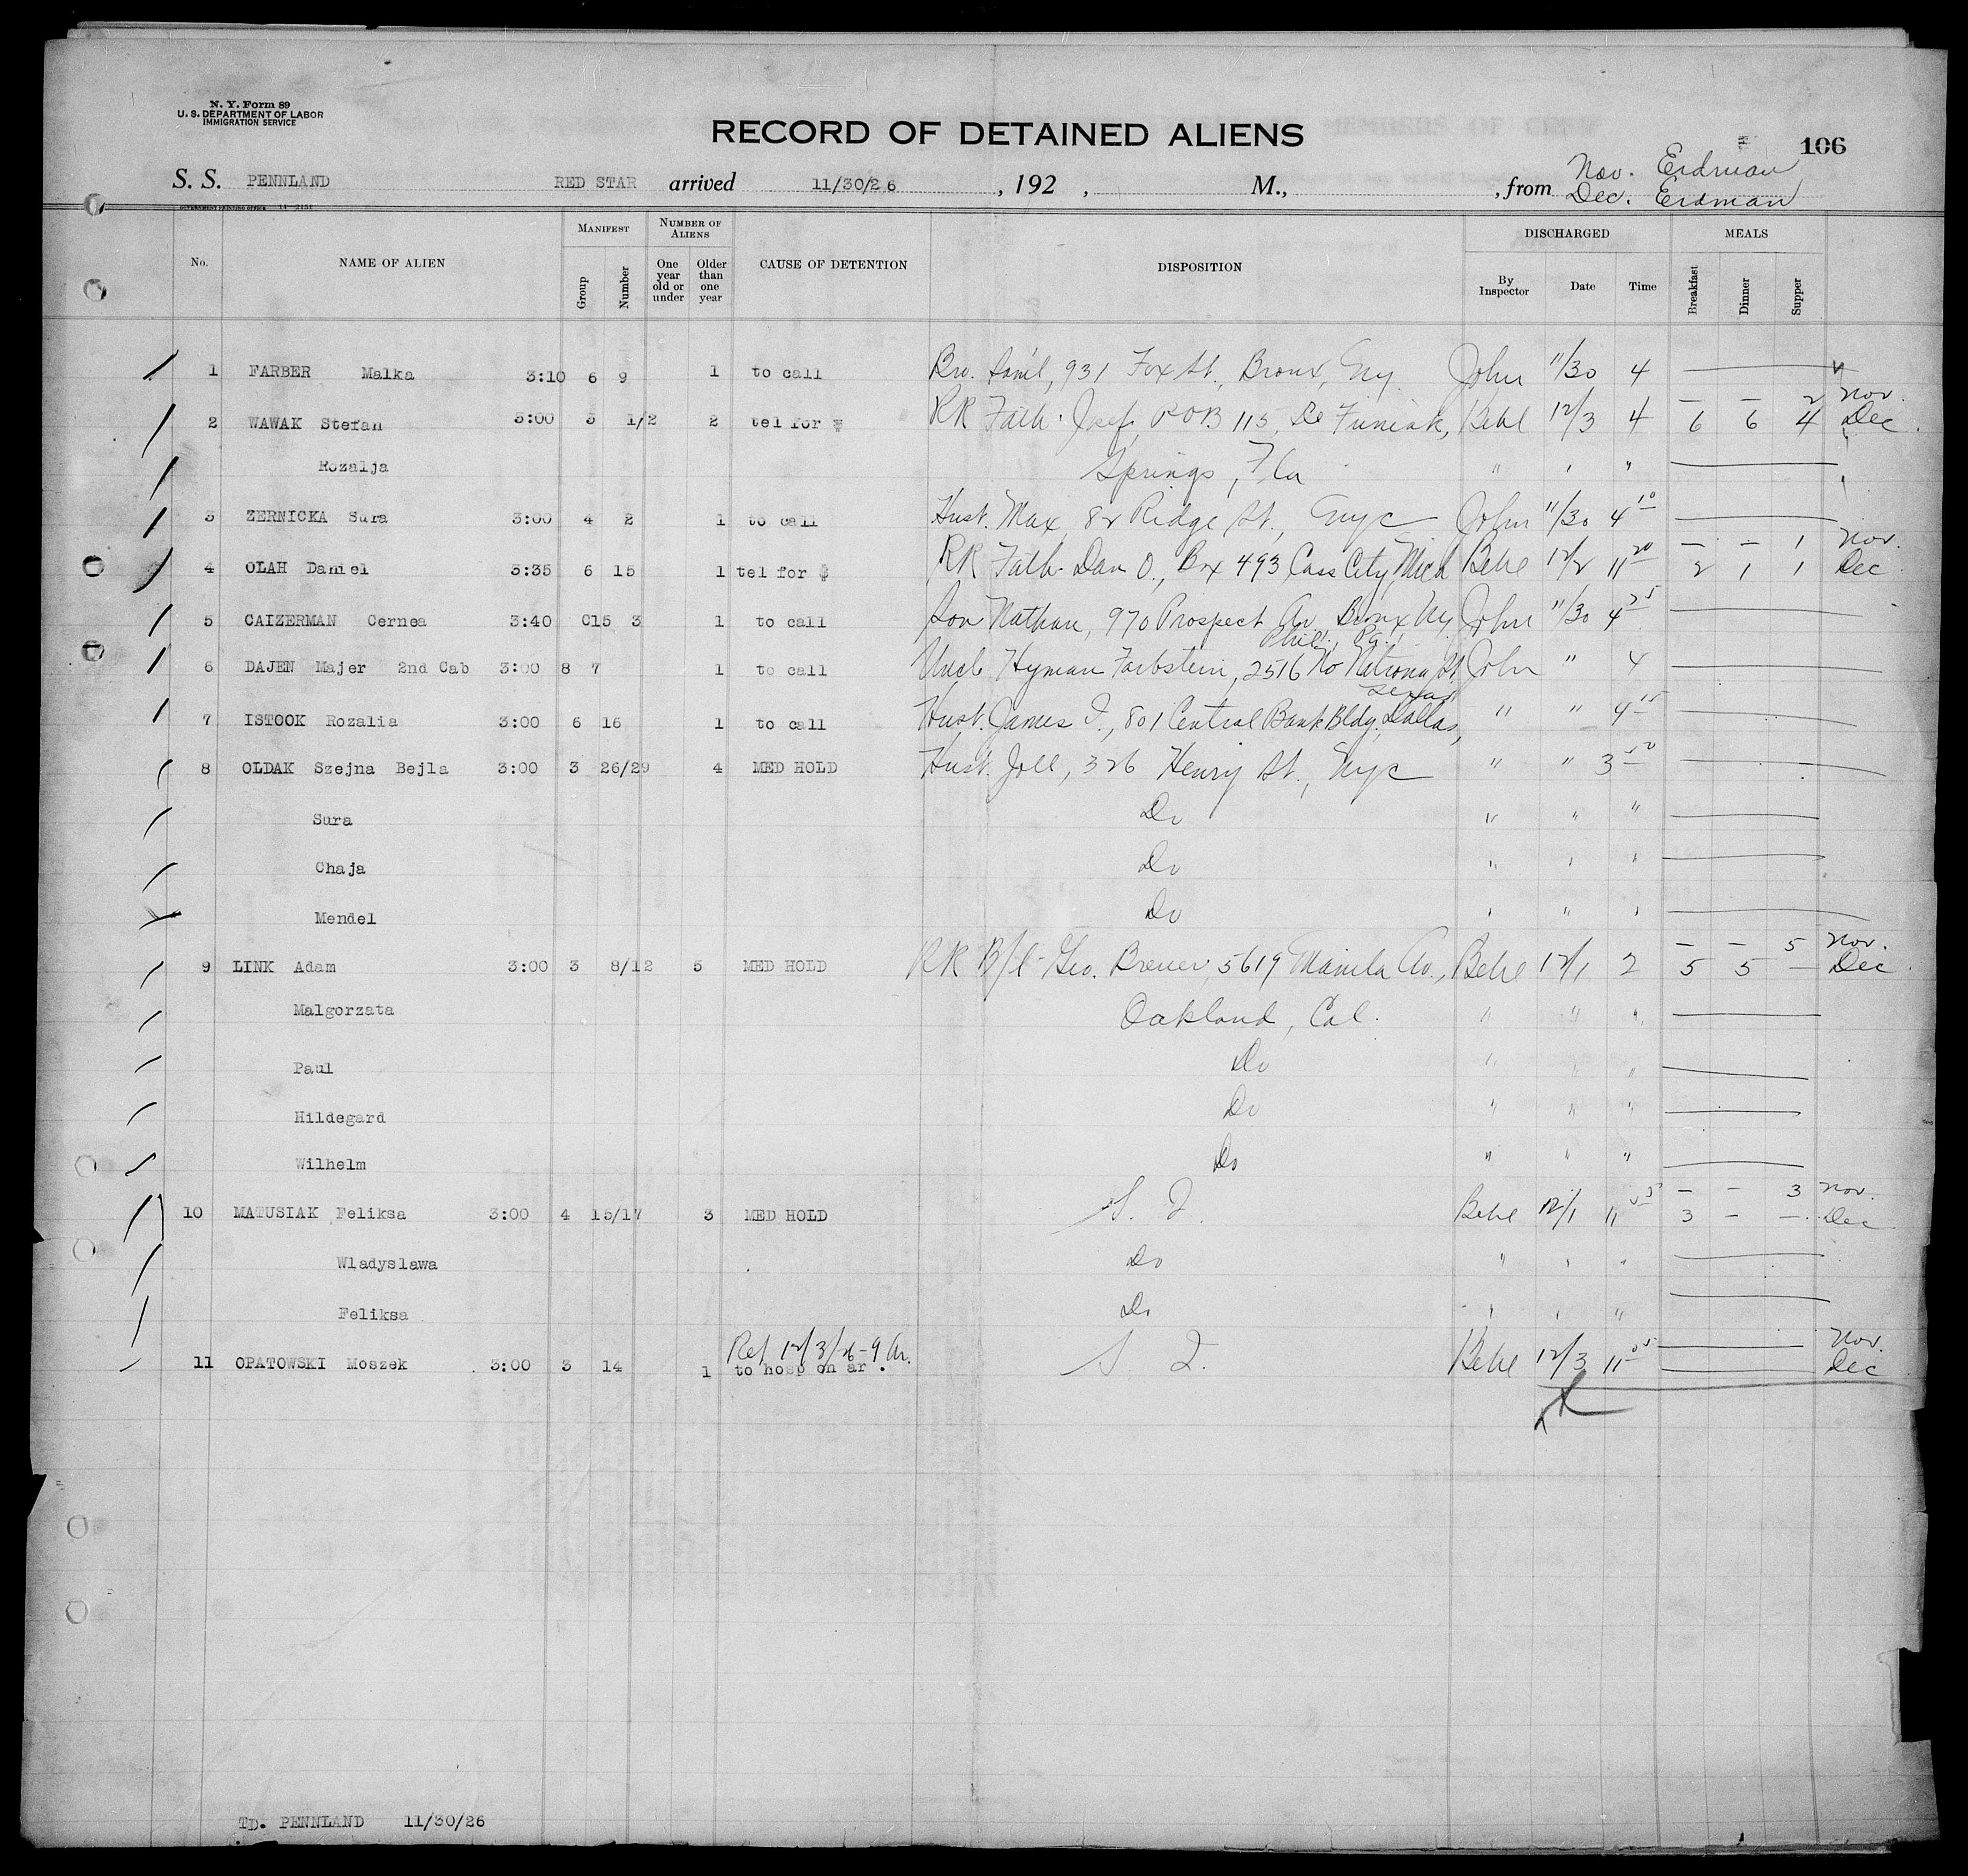 N. Y. Form 89
U. S. DEPARTMENT OF LABOR
IMMIGRATION SERVICE
RECORD OF DETAINED ALIENS
106
S. S. PENNLAND RED STAR arrived 11/30/26 , 192 , M., , from Nov. Erdman
Dec. Erdman
MANIFEST NUMBER OF ALIENS DISCHARGED MEALS
No. NAME OF ALIEN Group Number One year old or under Older than one year CAUSE OF DETENTION DISPOSITION By Inspector Date Time Breakfast Dinner Supper
1 FARBER Malka 3:10 6 9 1 to call Bro. Sam'l, 931 Fox St., Bronx, Ny. John 11/30 4
— — 2 Nov.
2 WAWAK Stefan 3:00 3 1/2 2 tel for $ RR Fath. Josef, P O B 115, De Funiak, Behl 12/3 4 6 6 4 Dec.
Rozalja Springs, Fla " " "
3 ZERNICKA Sura 3:00 4 2 1 to call Husb. Max, 82 Ridge St., Nyc John 11/30 4 10
— — 1 Nov.
4 OLAH Daniel 3:35 6 15 1 tel for $ RR Fath. Dan O., Bx 493 Cass City, Mich Behl 12/2 11 20 2 1 1 Dec
5 CAIZERMAN Cernea 3:40 C15 3 1 to call Son Nathan, 970 Prospect Av, Bronx Ny John 11/30 4 25
Phil., Pa.
6 DAJEN Majer 2nd Cab 3:00 8 7 1 to call Uncle Hyman Farbstein, 2516 No Natrona St. John " 4
Texas
7 ISTOOK Rozalia 3:00 6 16 1 to call Husb. James I., 801 Central Bank Bldg., Dallas, " " 4 15
8 OLDAK Szejna Bejla 3:00 3 26/29 4 MED HOLD Husb. Joll, 326 Henry St., Nyc " " 3 50
Sura Do " " "
Chaja Do " " "
Mendel Do " " "
— — 5 Nov.
9 LINK Adam 3:00 3 8/12 5 MED HOLD RR B/l Geo. Breuer, 5619 Manila Av., Behl 12/1 2 5 5 — Dec
Malgorzata Oakland, Cal. " " "
Paul Do " " "
Hildegard Do " " "
Wilhelm Do " " "
— — 3 Nov.
10 MATUSIAK Feliksa 3:00 4 15/17 3 MED HOLD Behl 12/1 11 3 — — Dec
Wladyslawa Do " " "
Feliksa Do " " "
Rel 12/3/26 - 9 Nov.
11 OPATOWSKI Moszek 3:00 3 14 1 to hosp on ar. Behl 12/3 11 Dec
TD. PENNLAND 11/30/26